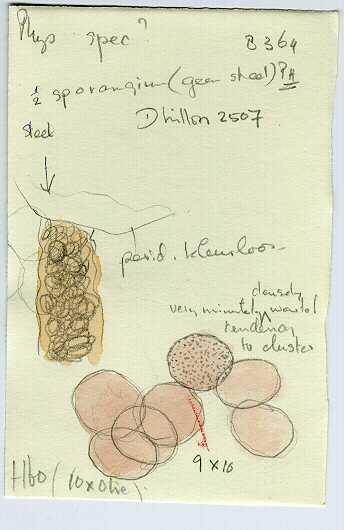 Phys spec?
B 364
½ sporangium (geen steel) PA
Dhillon 2507
steel
perid. kleurloos
densely
very minutely warted
tendency
to cluster
9 x 10
H60 (10x olie).